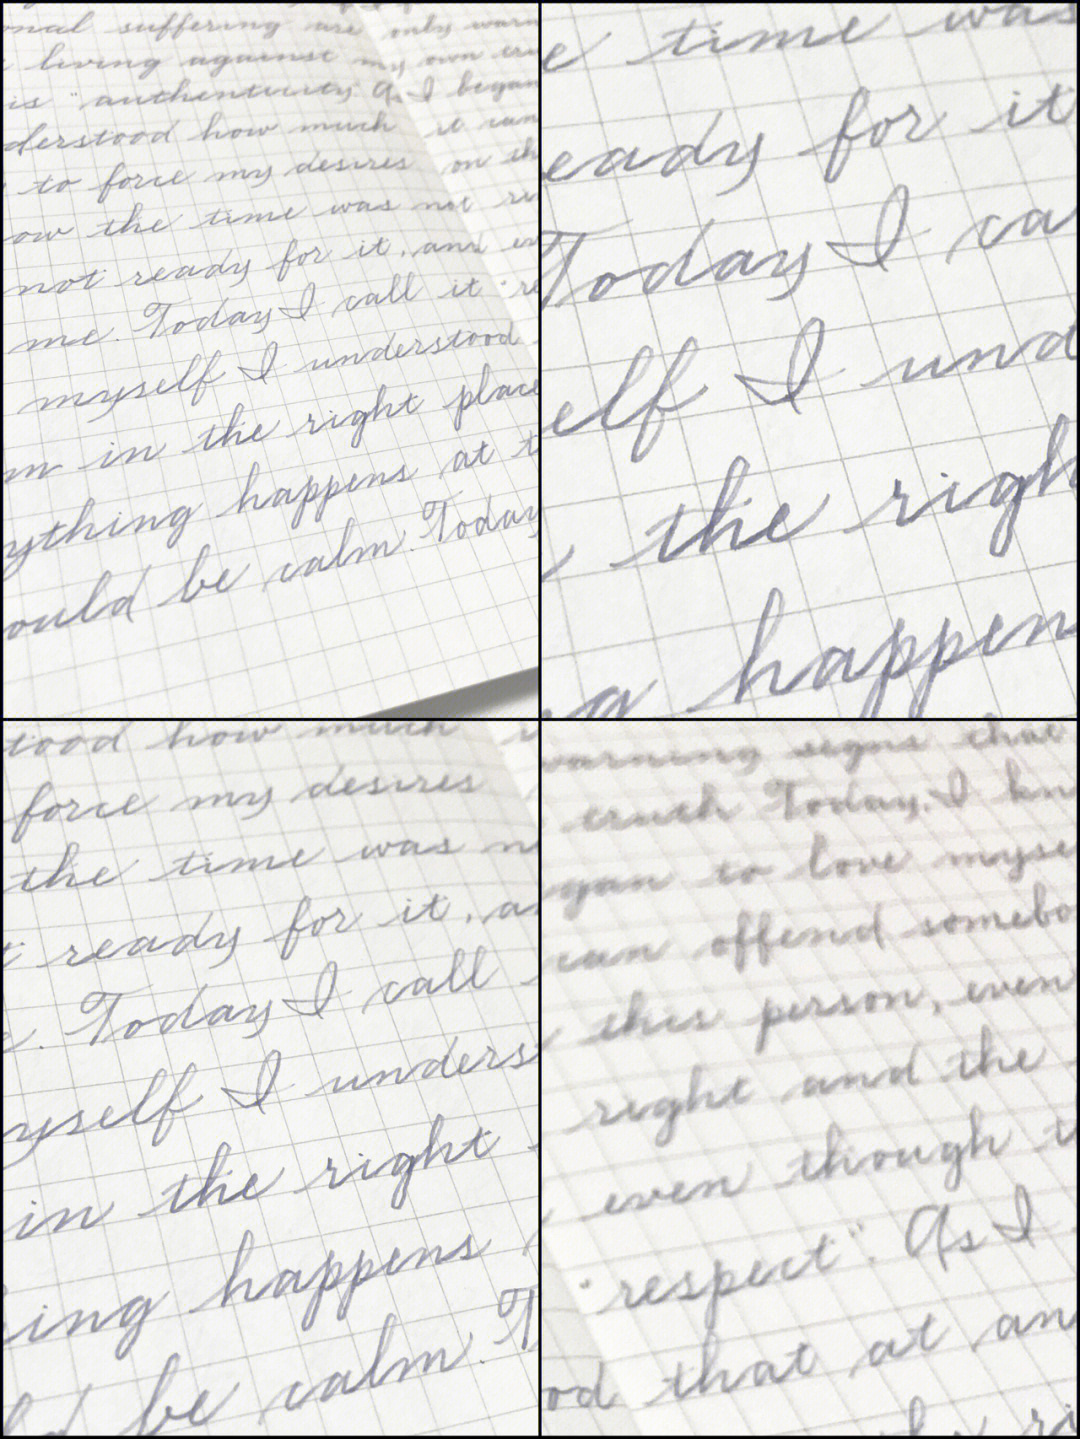 onal suffering are only warn
living against my own tru
is "authenticity". As I began
derstood how much it can
to force my desires on th
ow the time was not re
not ready for it, and ev
me. Today I call it "re
myself I understood
m in the right place
ything happens at t
ould be calm. Today
e time was
eady for it
Today I ca
elf I und
the righ
g happen
tood how much
force my desires
the time was n
t ready for it, a
e. Today I call
yself I unders
in the right
ing happens
d be calm. T
warning signs that
truth Today, I kn
gan to love myse
can offend somebo
this person, even
right and the
even though t
"respect". As I
od that at an